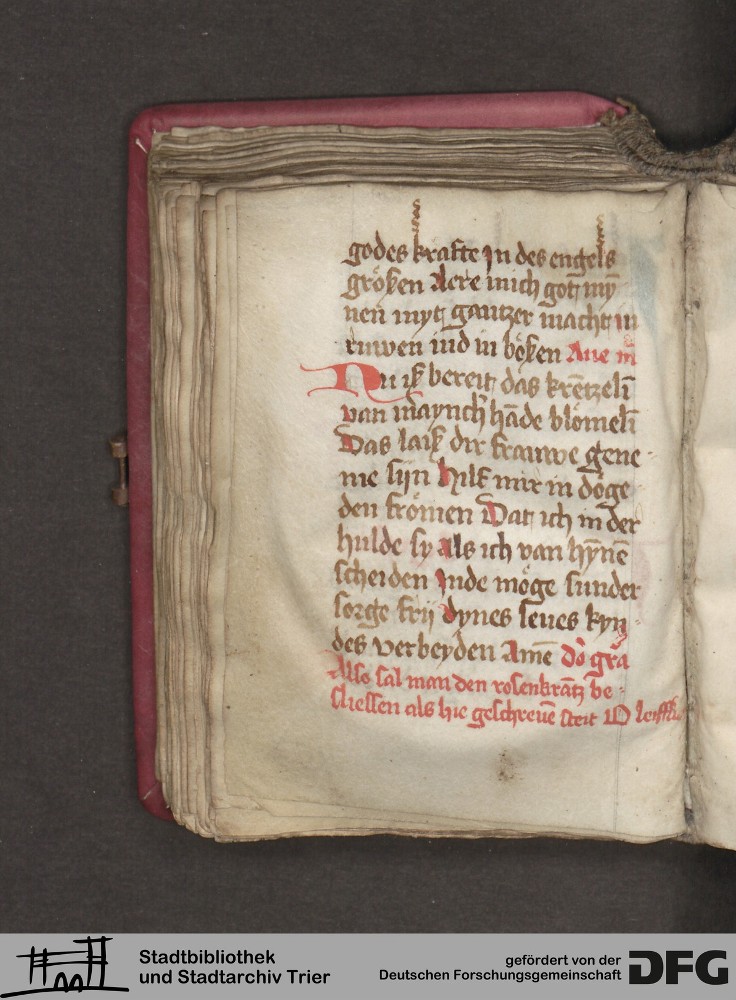 godes krafte Jn des engels
gröſsen Kere mich gotz mȳ
nen myt gantzer macht in
ruwen ind in bößen Aue m̄
Nu iß bereitz das krētzelī
van maynchʼ hāde blömelī
Das laiß dir frauwe gene
me sijn Hilf mir in döge
den frömen Datz ich in der
hulde sy Als ich van hȳnē
scheiden Jnde möge sunder
sorge frij dynes seues kyn
des verbeyden Amē do grā
Also sal man den rosenkrātz be
sliessen als hie geschreuē steit
Stadtbibliothek
und Stadtarchiv Trier
gefördert von der
Deutschen Forschungsgemeinschaft
DFG